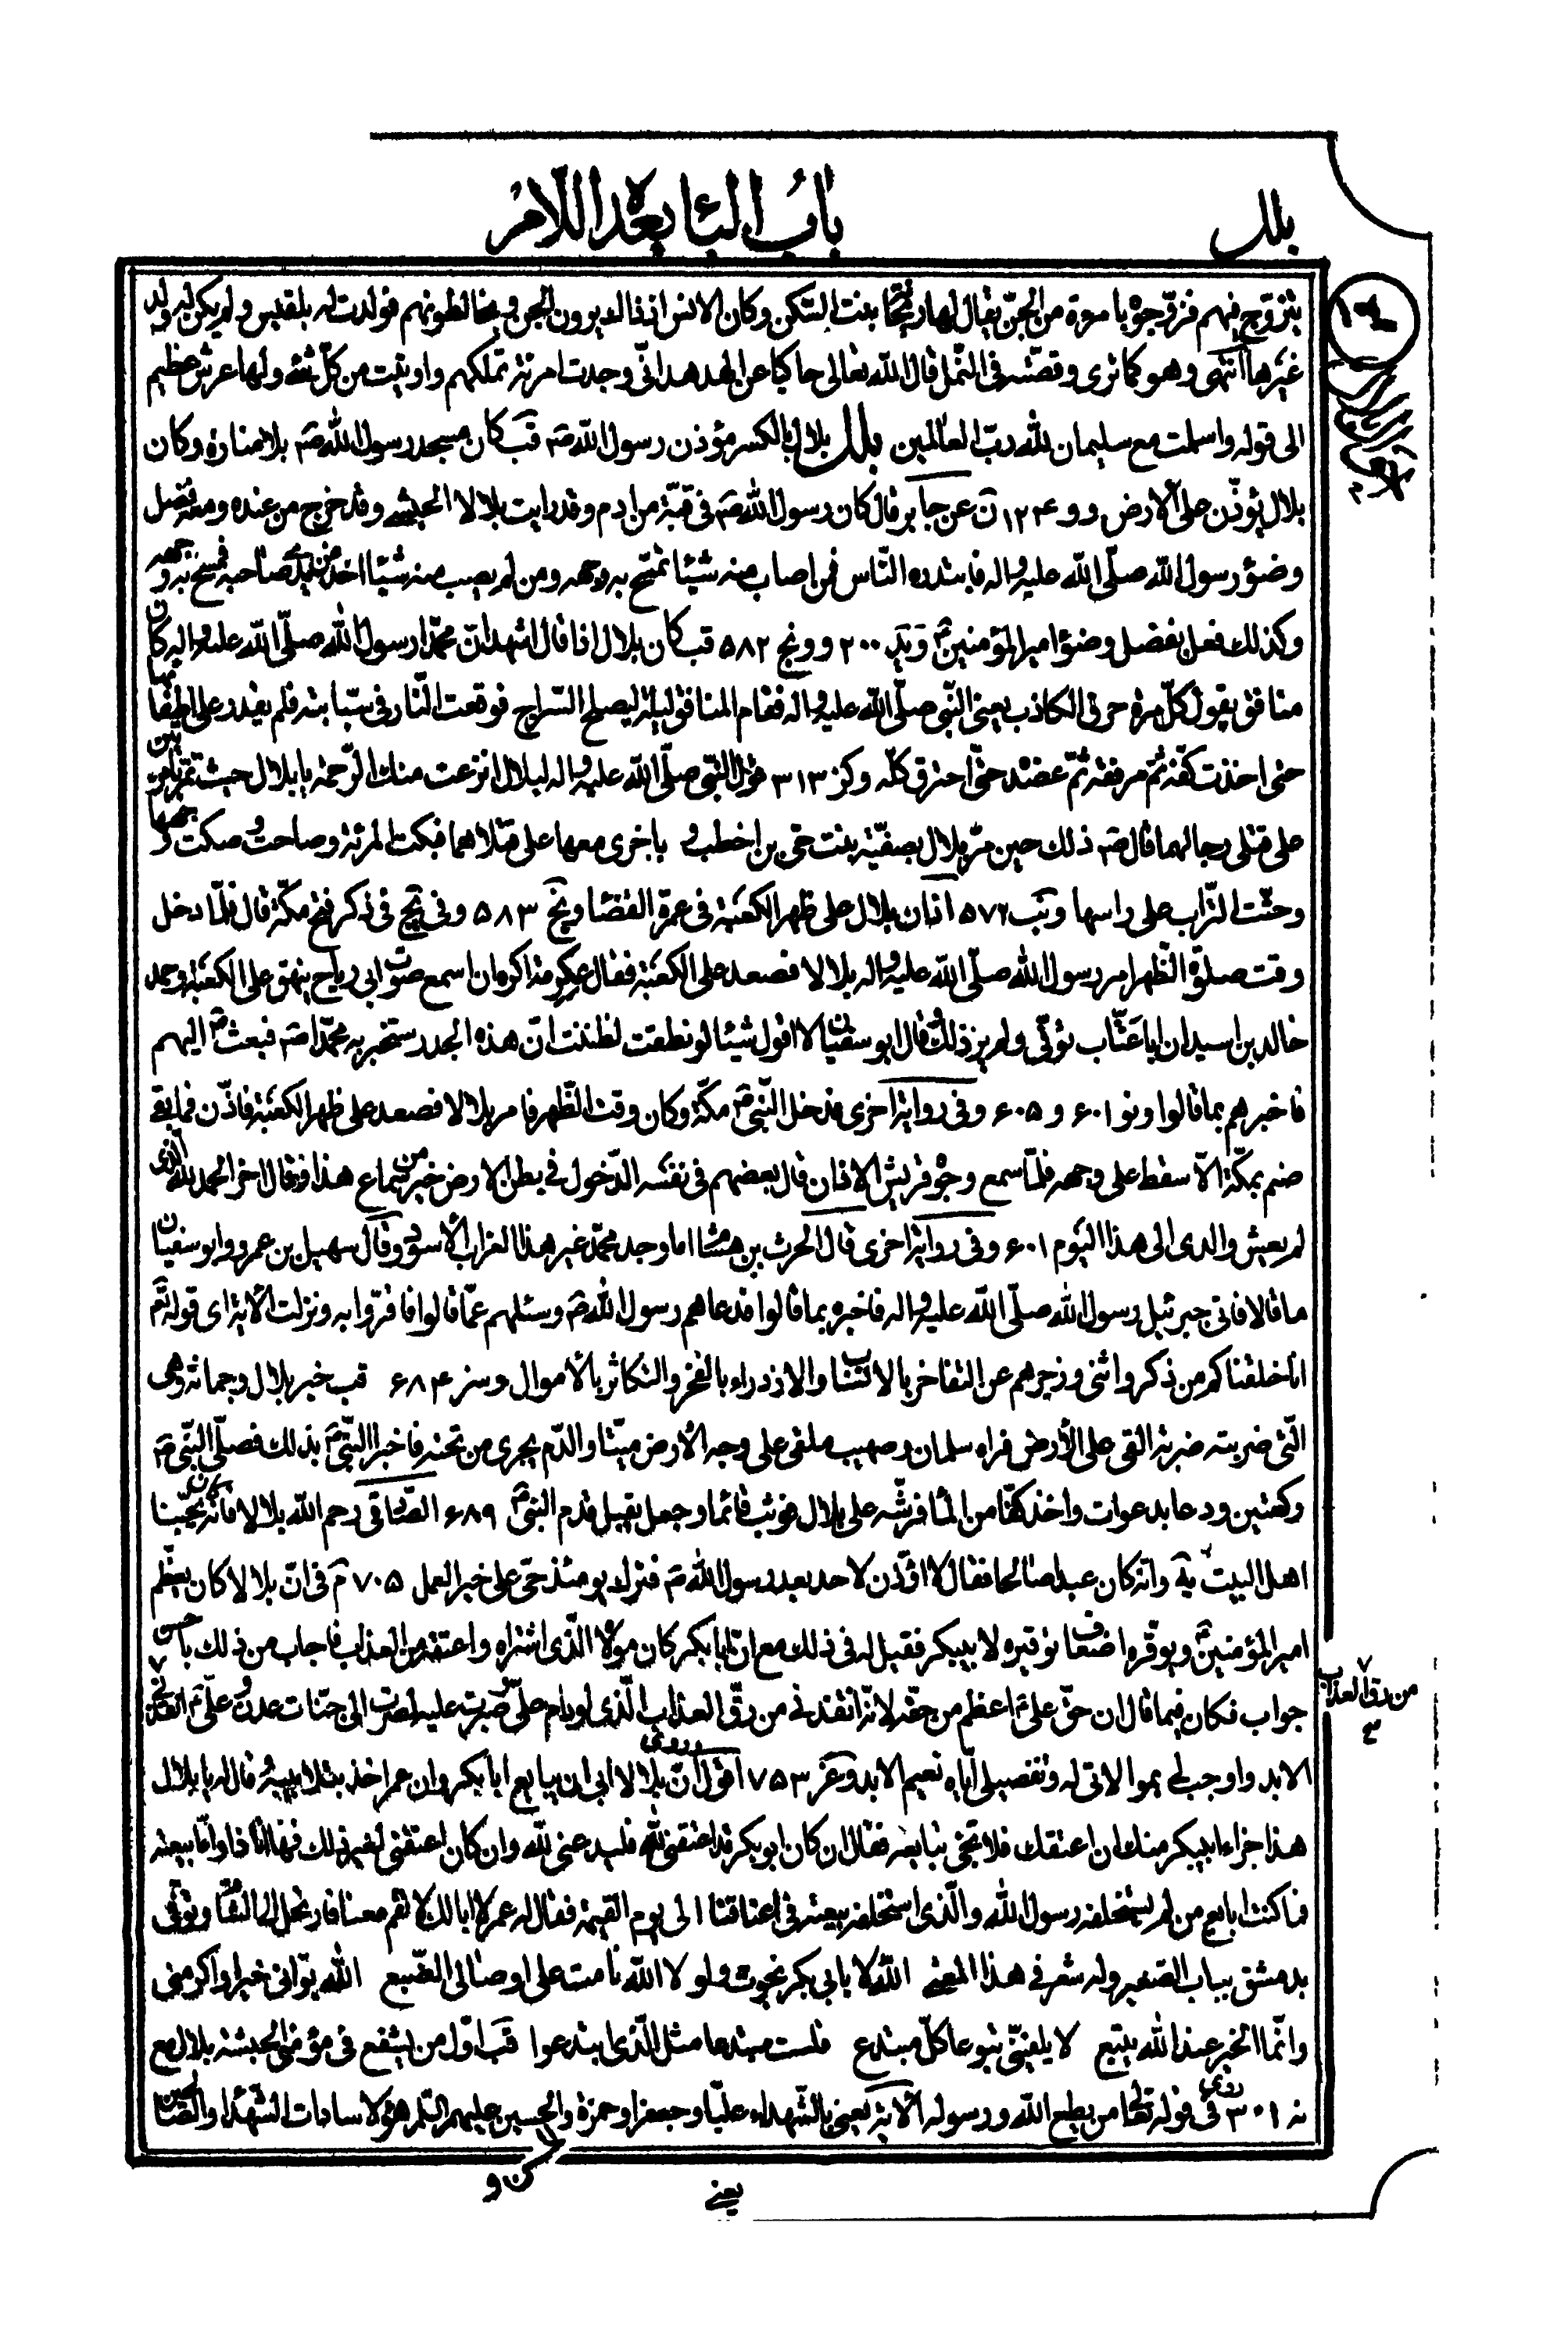 بلل
باب الباء بعده اللام
يتزوج فيهم فزوجوه بامرءة من الجن يقال لها ريحانة بنت السكن وكان الانس اذ ذاك يرون الجن و يخالطونهم فولدت له بلقيس ولم يكن له ولد
غيرها انتهى وهو كما ترى وقصته في النمل قال الله تعالى حاكيا عن الهدهد اني وجدت امرئة تملكهم واوتيت من كل شئ ولها عرش عظيم
الى قوله واسلمت مع سليمان لله رب العالمين بلل بلال بالكسر مؤذن رسول الله ص قب كان مسجد رسول الله ص بلا منارة وكان
بلال يؤذن على الارض وو ١٢۴ ن عن جابر قال كان رسول الله ص في قبة من ادم وقد رايت بلالا الحبشي وقد خرج من عنده ومعه فضل
وضوء رسول الله صلى الله عليه واله فابتدره الناس فمن اصاب منه شيئا تمسح به وجهه ومن لم يصب منه شيئا اخذ من يدي صاحبه فمسح به وجهه
وكذلك فعل بفضل وضوء امير المؤمنين ع ويد ٢٠٠ وو نج ۵٨٢ قب كان بلال اذا قال اشهد ان محمدا رسول الله صلى الله عليه واله كان
منافق يقول كل مرة حرق الكاذب يعني النبي صلى الله عليه واله فقام المنافق ليلة ليصلح السراج فوقعت النار في سبابته فلم يقدر على اطفائها
حتى اخذت كفه ثم مرفقه ثم عضده حتى احترق كله وكز ٣١٣ قول النبي صلى الله عليه واله لبلال انزعت منك الرحمة يا بلال حيث تمر بامرئتين
على قتلى رجالهما قال ص ذلك حين مر بلال بصفية بنت حي بن اخطب و باخرى معها على قتلاهما فبكت المرئة وصاحت و صكت وجهها
وحثت التراب على راسها و نب ۵٧٢ اذان بلال على ظهر الكعبة في عمرة القضا ونج ۵٨٣ وفي نج في ذكر فتح مكة قال فلما دخل
وقت صلوة الظهر امر رسول الله صلى الله عليه واله بلالا فصعد على الكعبة فقال عكرمة اكره ان اسمع صوت ابي رباح ينهق على الكعبة وحمد
خالد بن اسيد ان ابا عتاب توفى ولم ير ذلك وقال ابو سفيان لا اقول شيئا لو نطقت لظننت ان هذه الجدر ستخبر به محمدا ص فبعث ص اليهم
فاخبرهم بما قالوا ونو ۶٠١ و ۶٠۵ وفي رواية اخرى فدخل النبي ص مكة وكان وقت الظهر فامر بلالا فصعد على ظهر الكعبة فاذن فما بقى
صنم بمكة الا سقط على وجهه فلما سمع وجوه قريش الاذان قال بعضهم في نفسه الدخول في بطن الارض خير من سماع هذا وقال اخر الحمد لله الذي
لم يعش والدى الى هذا اليوم ۶٠١ وفي رواية اخرى قال الحرث بن هشام اما وجد محمد غير هذا الغراب الاسود وقال سهيل بن عمرو وابو سفيان
ما قالا فاتى جبرئيل رسول الله صلى الله عليه واله فاخبره بما قالوا فدعاهم رسول الله ص وسئلهم عما قالوا فاقروا به ونزلت الاية اى قوله تعالى
انا خلقناكم من ذكر وانثى وزجرهم عن التفاخر بالانساب والازدراء بالفقر والتكاثر بالاموال وسز ۶٨۴ قب خبر بلال وجماته وهى
التي ضربته ضربة القى على الارض فراه سلمان وصهيب ملقى على وجه الارض ميتا والدم يجرى من تحته فاخبرا النبي ص بذلك فصلى النبي ص
ركعتين ودعا بدعوات واخذ كفا من الماء فرشه على بلال فوثب قائما وجعل يقبل قدم النبي ص ۶٨٩ الصادق رحم الله بلالا فانه كان يحبنا
اهل البيت يه وانه كان عبدا صالحا فقال لا اؤذن لاحد بعد رسول الله ص فترك يومئذ حي على خير العمل ٧٠۵ م في ان بلالا كان يعظم
امير المؤمنين ع ويوقره اضعاف توقيره لابيبكر فقيل له في ذلك مع ان ابابكر كان مولاه الذي اشتراه واعتقه من العذاب فاجاب من ذلك باحسن
جواب فكان فيما قال ان حق علي ع اعظم من حقه لانه انقذني من رق العذاب الذي لو دام علي و صبرت عليه لصرت الى جنات عدن و علي ع انقذني
من رق العذاب
الابد واوجب لي بموالاتي له وتفضيلي اياه نعيم الابد وعز ٧۵٣ اقول وروى ان بلالا ابى ان يبايع ابابكر وان عمر اخذ بتلابيبه وقال له يا بلال
هذا جزاء ابيبكر منك ان اعتقك فلا تجئ تبايعه فقال ان كان ابو بكر قد اعتقني لله فليدعني لله وان كان اعتقني لغير ذلك فها انا ذا واما بيعته
فما كنت ابايع من لم يستخلفه رسول الله والذي استخلفه بيعته في اعناقنا الى يوم القيمة فقال له عمر لا ابالك لا تقم معنا فارتحل الى الشام وتوفى
بدمشق بباب الصغير وله شعر في هذا المعنى الله لا بابي بكر نجوت ولولا الله نامت على اوصالي الضبع الله بوأني خيرا واكرمني
وانما الخير عند الله يتبع لا يلفيني تبوعا كل مبتدع فلست مبتدعا مثل الذي ابتدعوا قب اول من يشفع في مؤمني الحبشة بلال مع
نه ٣٠١ روى في قوله تعالى من يطع الله ورسوله الاية يعني بالشهداء عليا وجعفرا وحمزة والحسنين عليهم السلام هؤلاء سادات الشهداء والصالحين
يعني